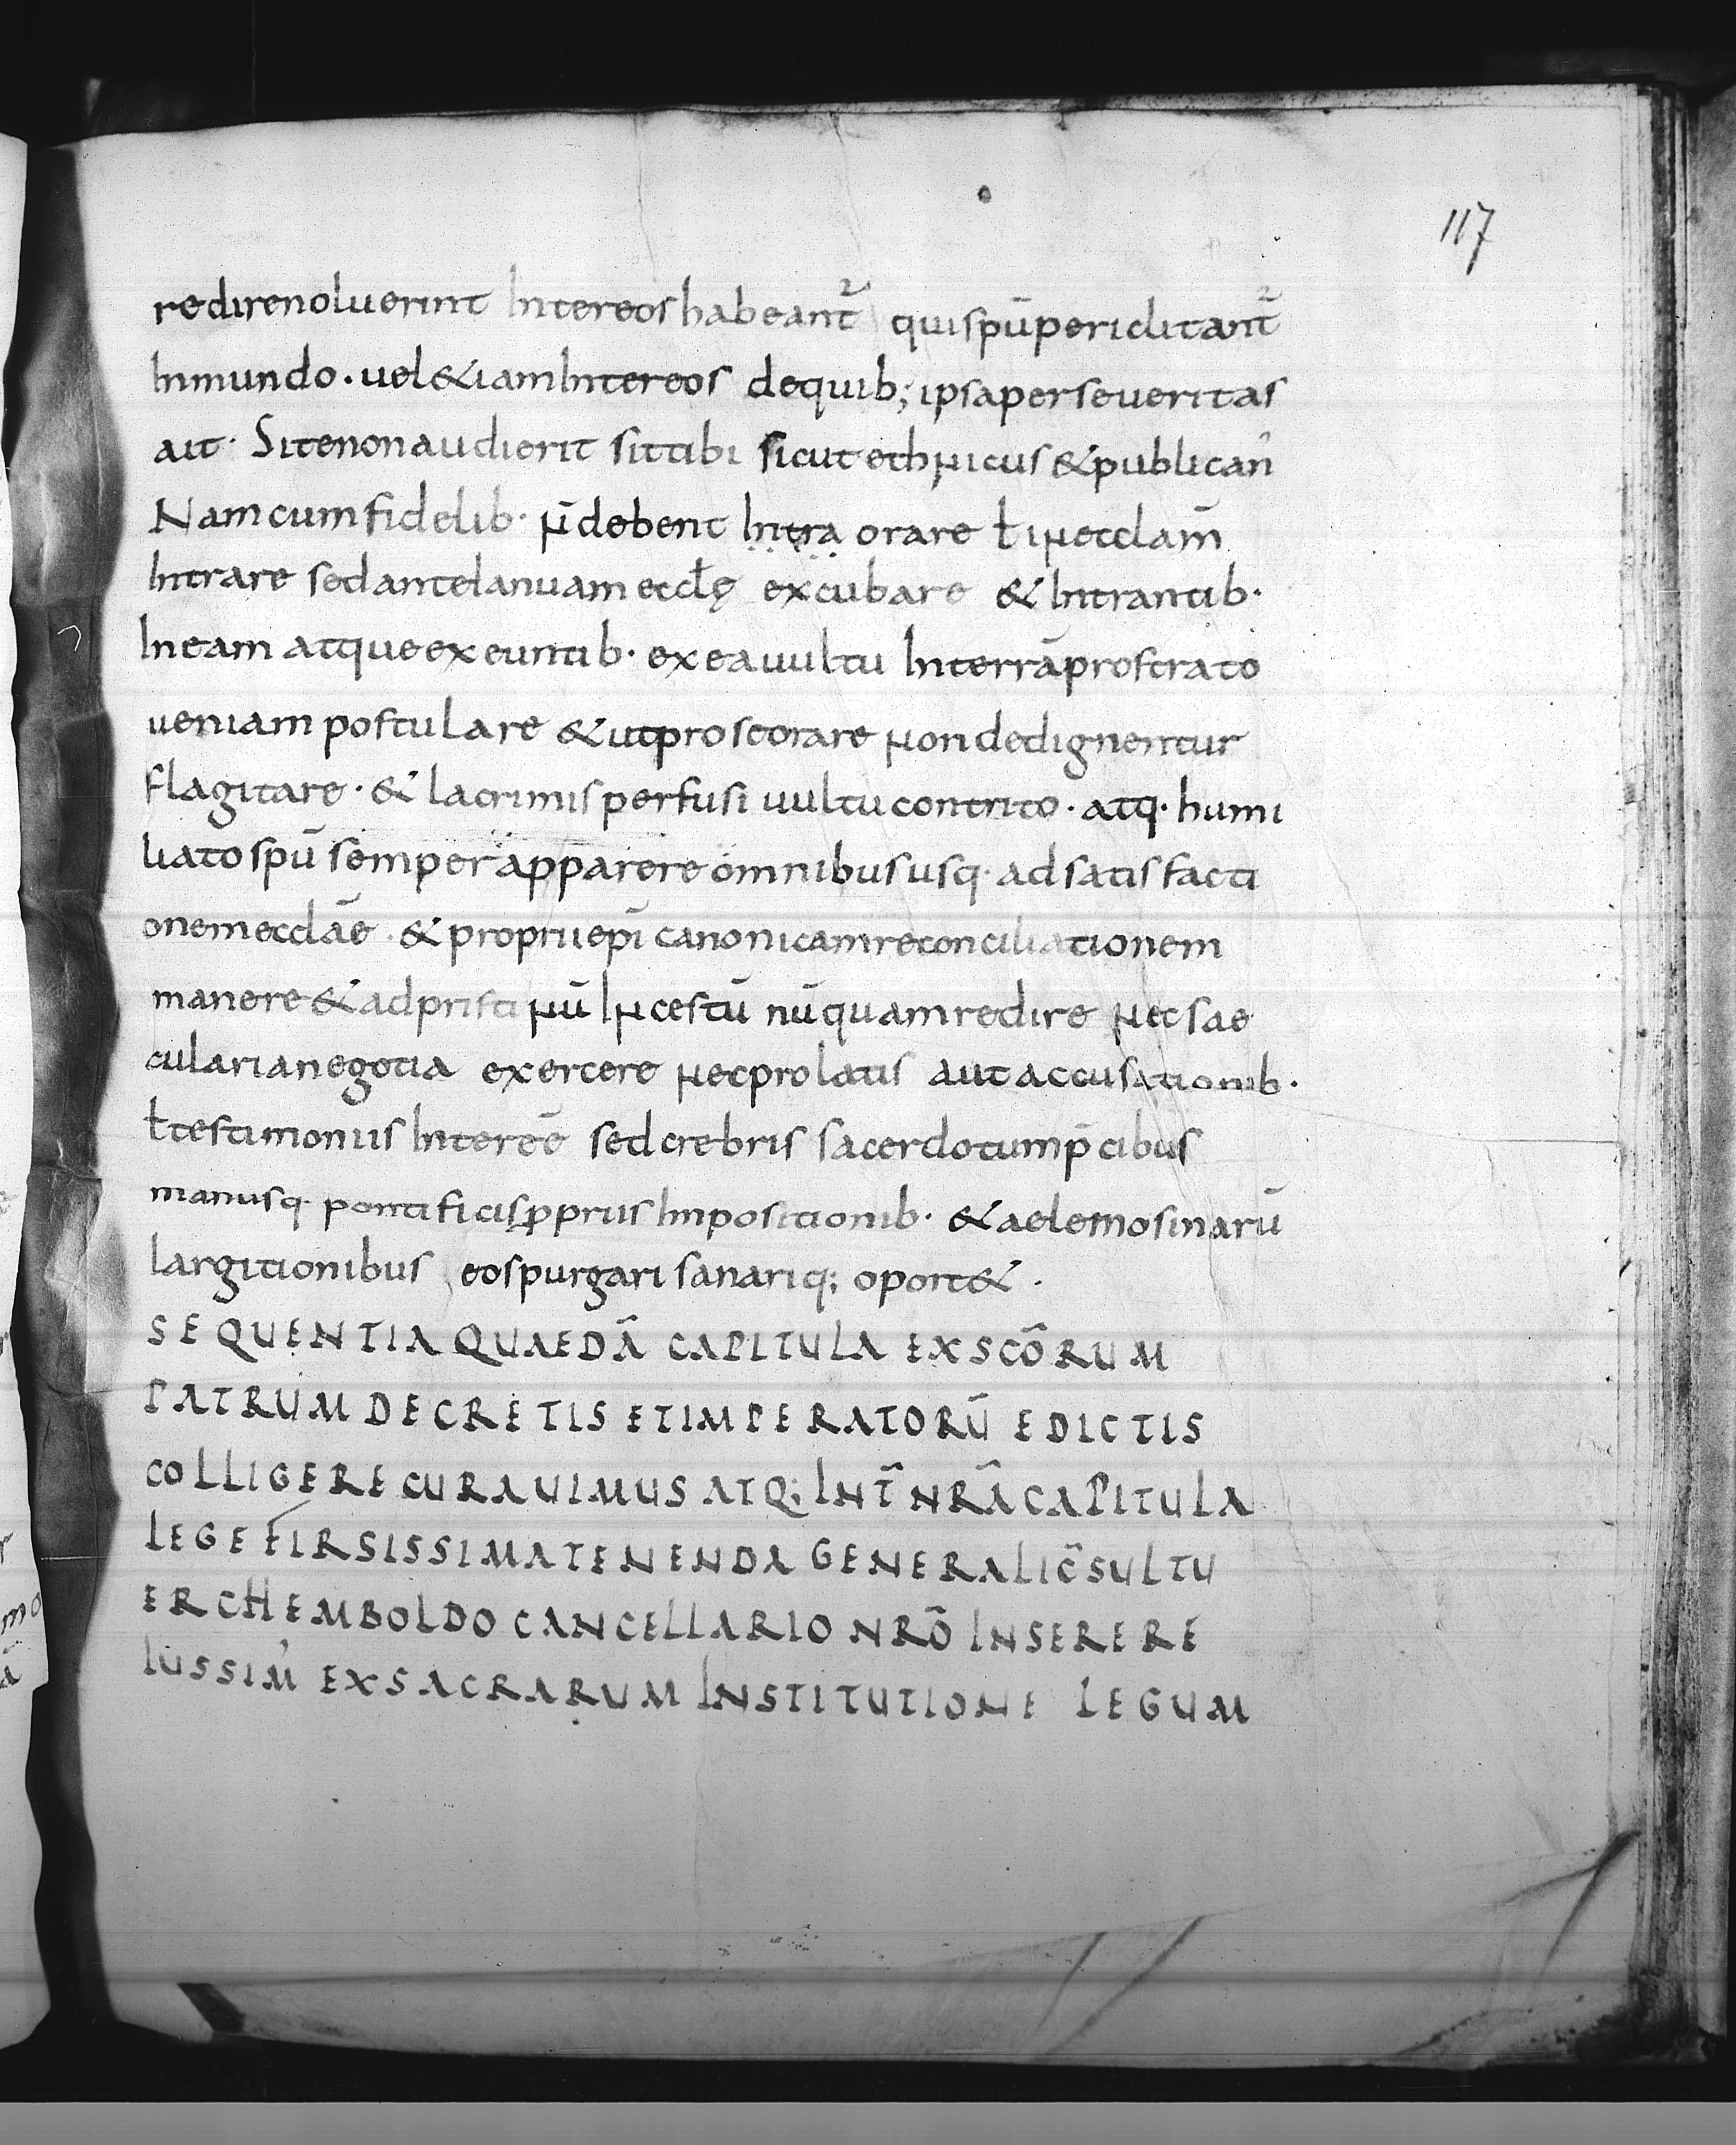 117
redirenoluerint Intereos habeant̄ quispūpericlitant̄
Inmundo. uel&iamIntereos dequib; ipsaperseueritas
ait· Sitenonaudierit sittibi sicut ethnicus &publican'
Namcumfidelib· n̄debent Intra orare ł ineccłam̄
Intrare sedanteIanuam eccłę excubare & Intrantib·
Ineam atqueexeuntib· exeauultu Interrāprostrato
ueniam postulare &utproseorare nondedignentur
flagitare· & lacrimis perfusi uultucontrito· atq· humi
liato spū semper apparere omnibus usq· adsatisfacti
onemeccłāe· & propriiepī canonicamreconciliationem
manere & adpristinū Incestū nūquamredire nec sae
cularianegotia exercere necprolatis aut accusationib·
ł testimoniis Intereē sedcrebris sacerdotump̄cibus
manusq· pontificisꝓpriis Impositionib· &aelemosinarū
largitionibus eospurgari sanariq; oport&.
SEQUENTIA QUAEDĀ CAPITULA EX SCŌRUM
PATRUM DECRETIS ET IMPERATORŪ EDICTIS
COLLIGERE CURAUIMUS ATQ; INT̄ NRĀ CAPITULA
LEGE FIRSISSIMA TENENDA GENERALI C̄SULTU
ERCHEMBOLDO CANCELLARIO NRŌ INSERERE
IUSSIM' EX SACRARUM INSTITUTIONE LEGUM